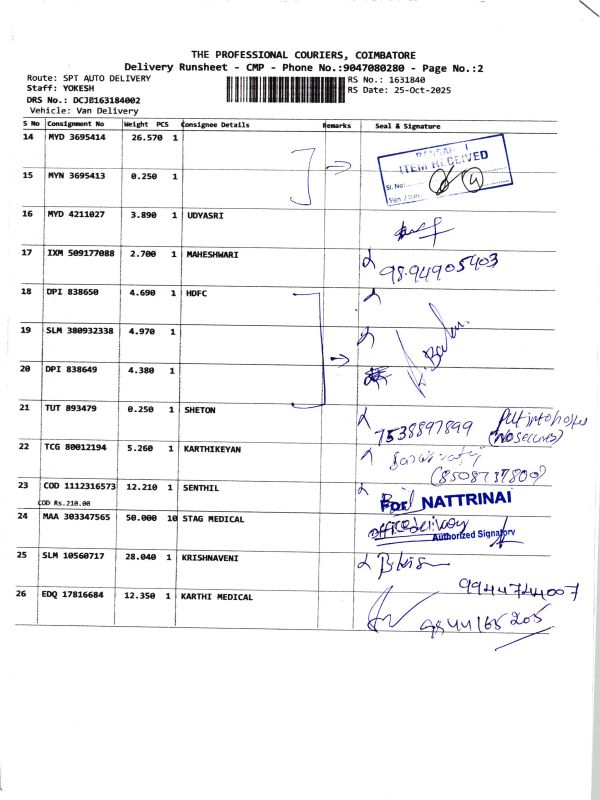 THE PROFESSIONAL COURIERS, COIMBATORE
Delivery Runsheet - CMP - Phone No.:9047080280 - Page No.:2
Route: SPT AUTO DELIVERY
Staff: YOKESH
DRS No.: DCJB163184002
Vehicle: Van Delivery
RS No.: 1631840
RS Date: 25-Oct-2025
S No Consignment No Weight PCS Consignee Details Remarks Seal & Signature
14 MYD 3695414 26.570 1
ITEM RECEIVED
Sl. No:
Sign / Date
15 MYN 3695413 0.250 1
16 MYD 4211027 3.890 1 UDYASRI
17 IXM 509177088 2.700 1 MAHESHWARI
9894905403
18 DPI 838650 4.690 1 HDFC
19 SLM 380932338 4.970 1
20 DPI 838649 4.380 1
21 TUT 893479 0.250 1 SHETON
7538897899
22 TCG 80012194 5.260 1 KARTHIKEYAN
(8508737800)
23 COD 1112316573 12.210 1 SENTHIL
COD Rs.210.00
For NATTRINAI
24 MAA 303347565 50.000 10 STAG MEDICAL
office delivery
Authorized Signatory
25 SLM 10560717 28.040 1 KRISHNAVENI
26 EDQ 17816684 12.350 1 KARTHI MEDICAL
9944744007
9844165205